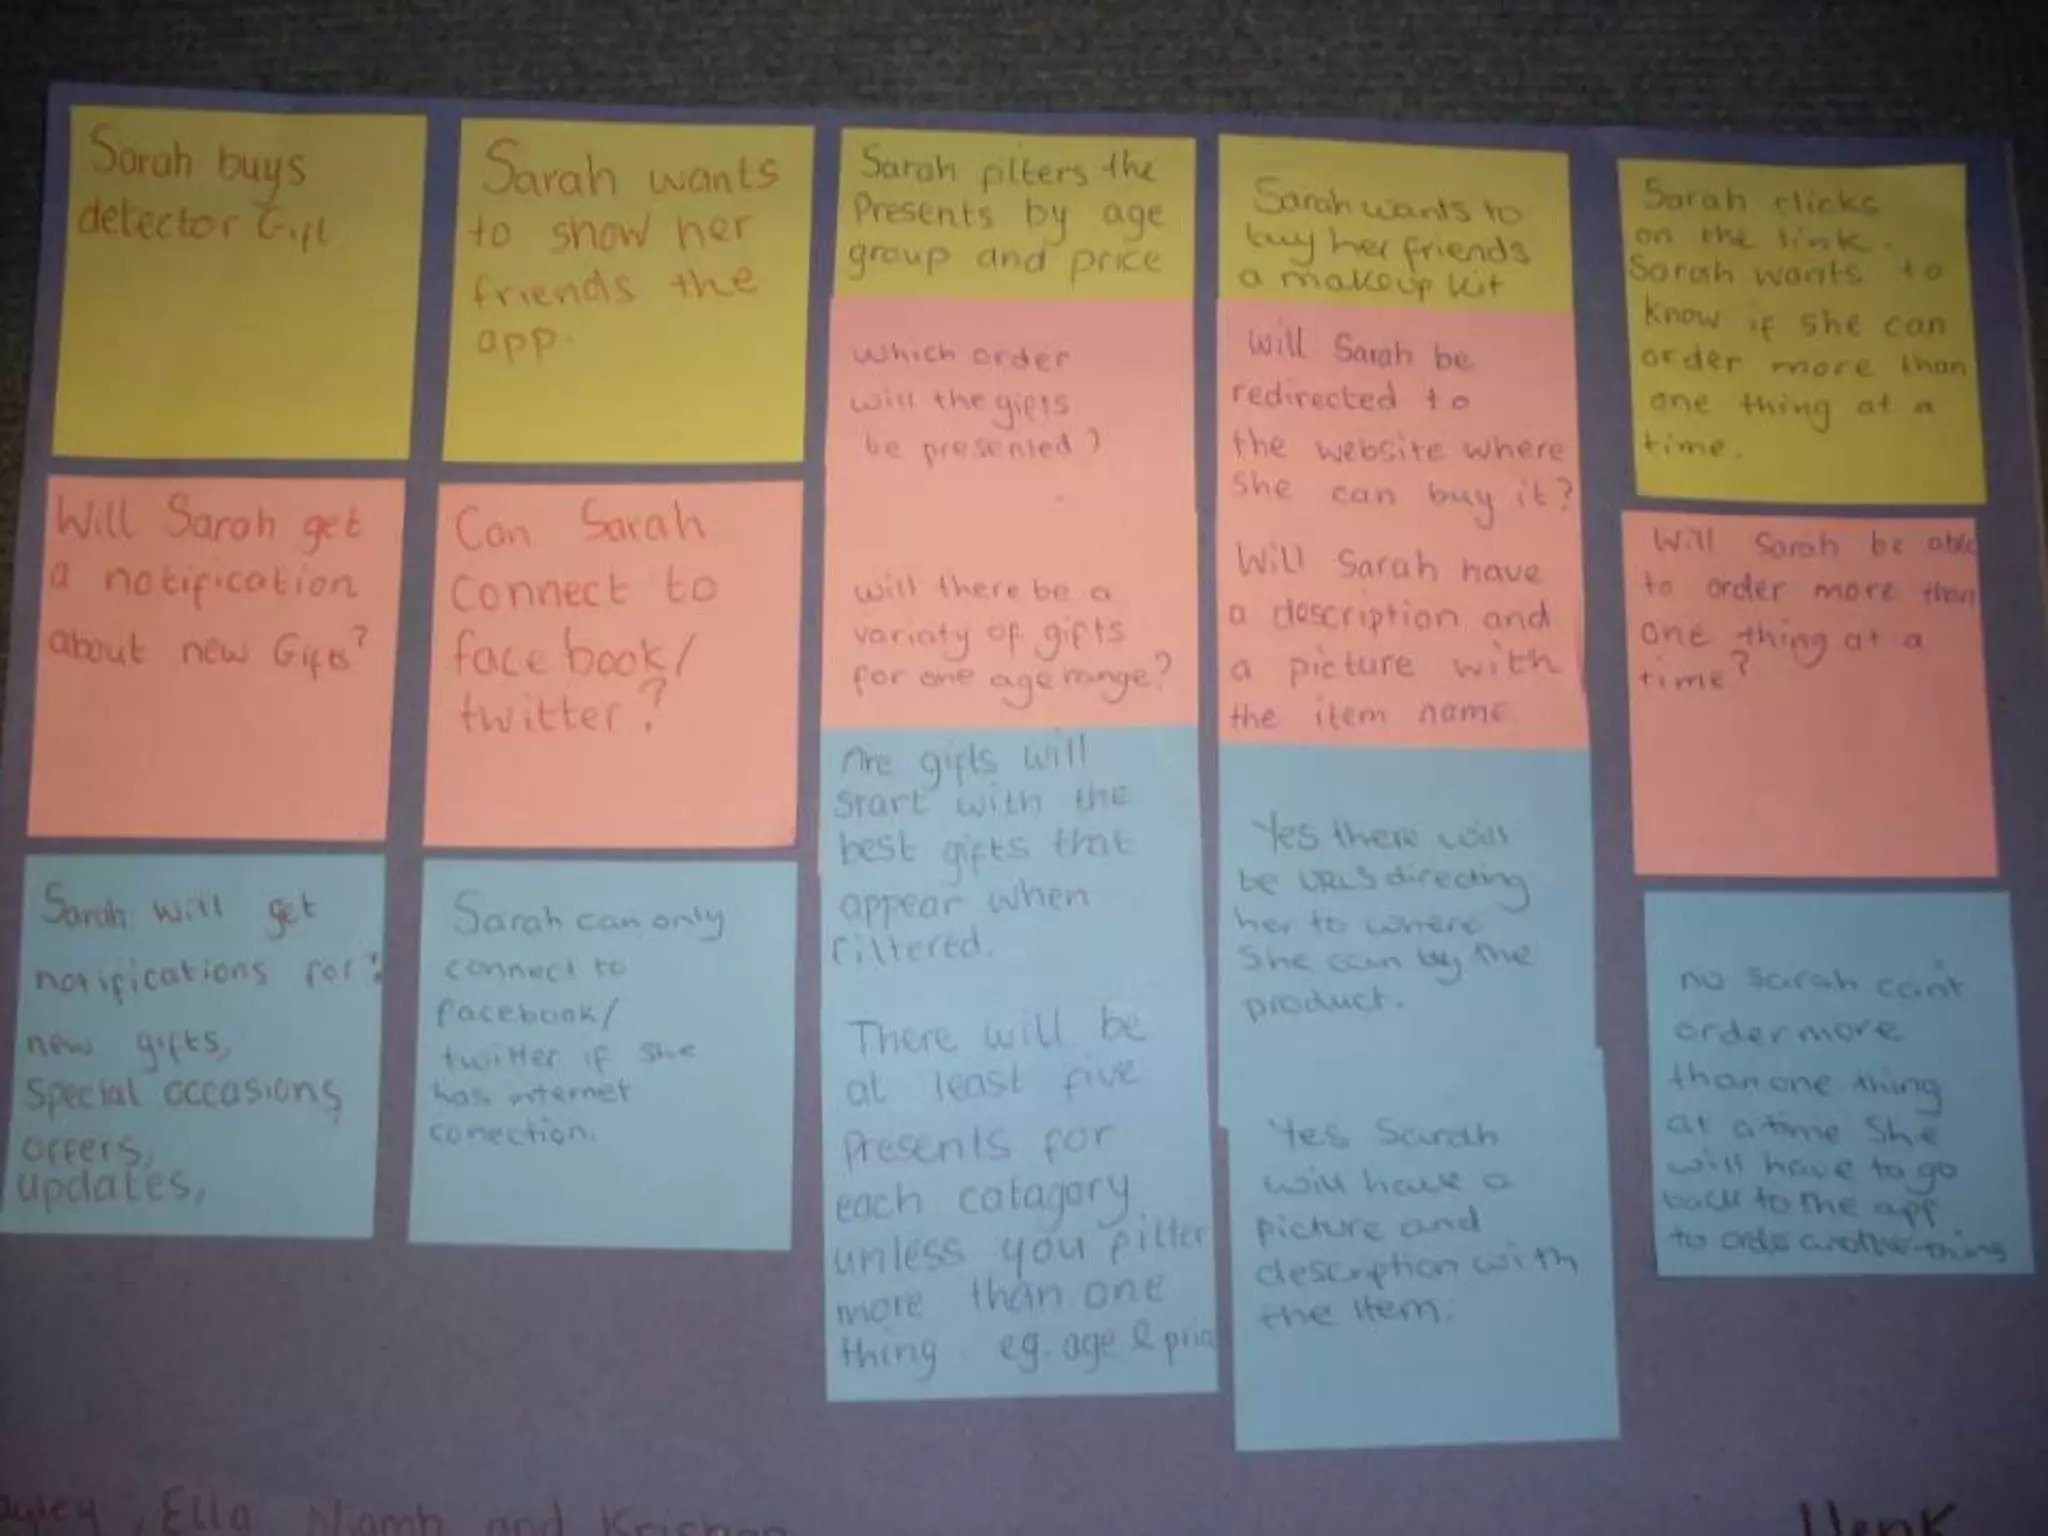 Sarah buys
detector Gift
Will Sarah get
a notification
about new Gifts?
Sarah will get
notifications for:
new gifts,
Special occasions,
offers,
updates,
Sarah wants
to show her
friends the
app.
Can Sarah
Connect to
facebook/
twitter?
Sarah can only
connect to
facebook/
twitter if she
has internet
conection.
Sarah filters the
Presents by age
group and price
which order
will the gifts
be presented?
will there be a
variaty of gifts
for one age range?
Are gifts will
start with the
best gifts that
appear when
filtered.
There will be
at least five
Presents for
each catagory
unless you filter
more than one
thing. eg. age &
Sarah wants to
buy her friends
a makeup kit
Will Sarah be
redirected to
the website where
she can buy it?
Will Sarah have
a description and
a picture with
the item name
Yes there will
be URLS directing
her to where
She can by the
product.
Yes Sarah
will have a
picture and
description with
the item.
Sarah clicks
on the link.
Sarah wants to
know if she can
order more than
one thing at a
time.
Will Sarah be able
to order more than
one thing at a
time?
no Sarah can't
order more
than one thing
at a time She
will have to go
back to the app
to order another thing
Ella Niamh and